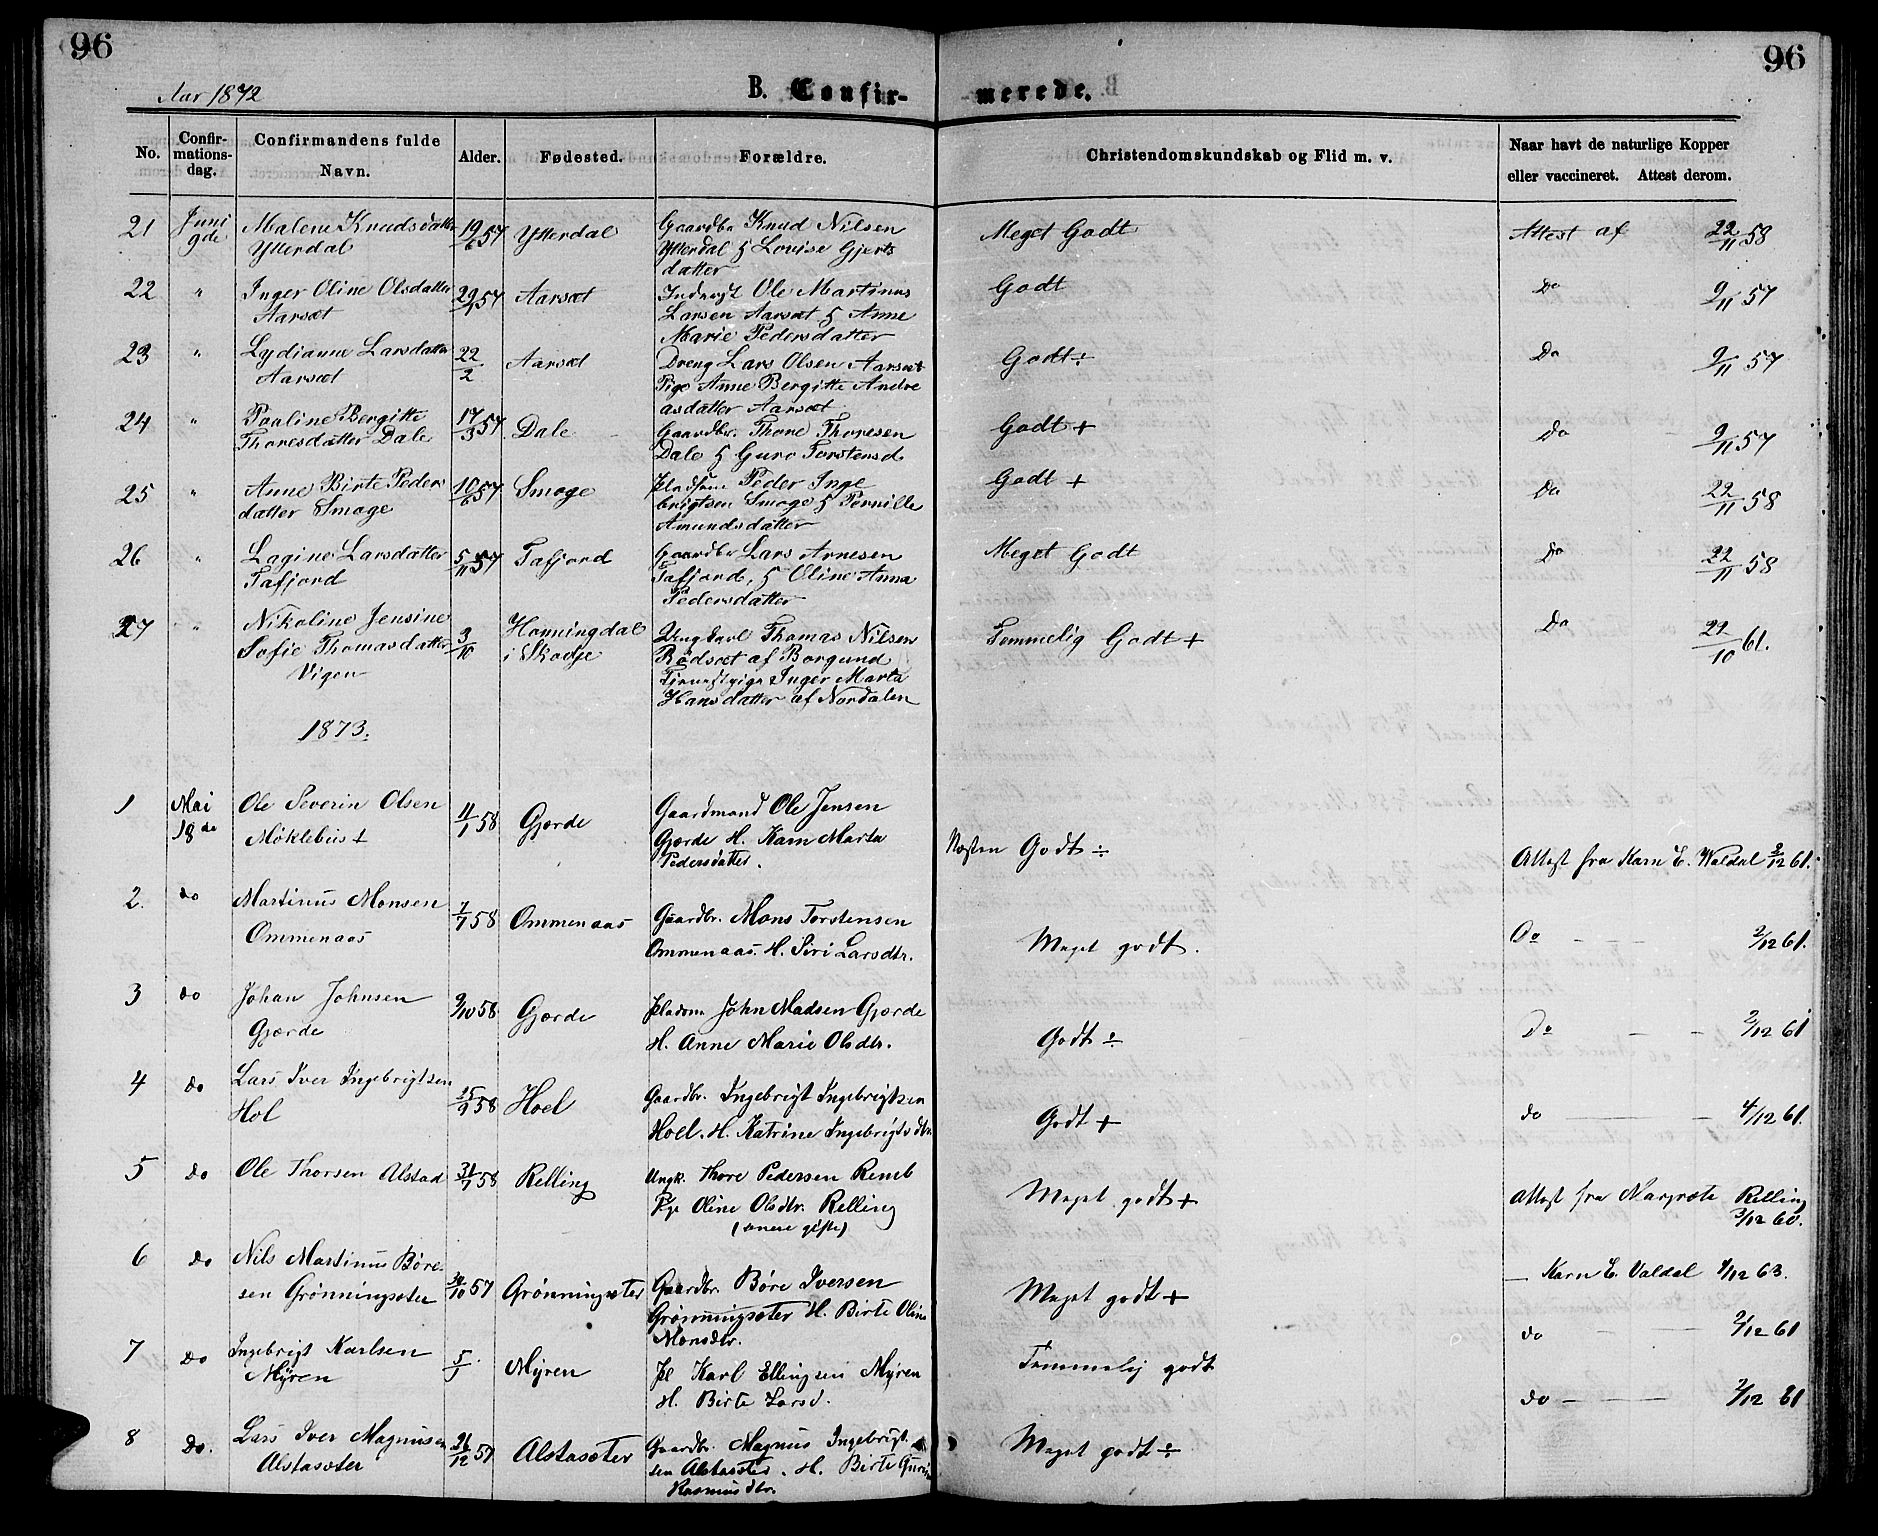 96
96
Aar 1872
B. Confir-
merede.
No.
Confir-
mations-
dag.
Confirmandens fulde
Navn.
Alder.
Fødested.
Forældre.
Christendomskundskab og Flid m. v.
Naar havt de naturlige Kopper
eller vaccineret. Attest derom.
21 Juni Malene Knudsdatter 19/6 57 Ytterdal Gaardbr Knud Nilsen Meget Godt Attest af 22/11 58
9de Ytterdal Ytterdal H Lovise Gjerts
datter
22 " Inger Oline Olsdatter 29/1 57 Aarsæt Ole Martinus Godt Do 9/11 57
Aarsæt Larsen Aarsæt H Anne
Marie Pedersdatter
23 " Lydianne Larsdatter 22/2 Aarsæt Dreng Lars Olsen Aarsæt Godt ÷ Do 9/11 57
Aarsæt Pige Anne Bergitte Andre
asdatter Aarsæt
24 " Pauline Bergitte 17/3 57 Dale Gaardbr. Thore Thoresen Godt + Do 9/11 57
Thoresdatter Dale Dale H Guro Torstensd
25 " Anne Birte Peders 10/6 57 Smoge Pladsm Peder Inge Godt + Do 22/11 58
datter Smoge brigtsen Smoge H Pernille
Amundsdatter
26 " Lagine Larsdatter 5/11 57 Tafjord Gaardbr Lars Arnesen Meget Godt Do 22/11 58
Tafjord Tafjord, H Oline Anna
Pedersdatter
27 " Nikoline Jensine 3/10 Honningdal Ungkarl Thomas Nilsen Temmelig Godt + Do 22/10 61.
Sofie Thomasdatter i Skodje Rødsæt af Borgund
Vigen Inger Marta
Hansdatter af Nordalen
1873.
1 Mai Ole Severin Olsen 11/1 58 Gjørde Gaardmand Ole Jensen Næsten Godt ÷ Attest fra Karn E. Waldal 2/12 61.
18de Møklebust Gjørde H. Karn Marta
Pedersdatter.
2. do Martinus Monsen 7/7 58 Ommenaas Gaardbr. Mons Torstensen Meget godt. Do - - - 2/12 61.
Ommenaas Ommenaas. H. Siri Larsdtr.
3 do Johan Johnsen 9/10 58 Gjørde Pladsm John Madsen Gjørde Godt ÷ Do - - 2/12 61
Gjørde H. Anne Marie Olsdtr.
4 do Lars Iver Ingebrigtsen 25/9 58 Hoel Gaardbr. Ingebrigt Ingebrigtsen Godt + do - - 4/12 61.
Hol Hoel. H. Katrine Ingebrigtsdtr.
5 do Ole Thorsen Alstad 31/7 58 Relling Ungk. Thore Pedersen Remb Meget godt + Attest fra Margrete Relling
Pge Oline Olsdtr. Relling 3/12 60.
(senere gifte)
6 do Nils Martinus Børe- 30/10 57 Grønningsæter Gaardbr. Børe Iversen Meget godt + - Karn E. Valdal 4/12 63.
sen Grønningsæter Grønningsæter H. Birte Oline
Monsdtr.
7 do Ingebrigt Karlsen 5/1 Myren Pl Karl Ellingsen Myren Temmelig godt do - - 2/12 61
Myren H. Birte Larsd.
8 do. Lars Iver Magnusen 26/12 57 Alstasæter Gaardbr. Magnus Ingebrigt- Meget godt ÷ do - - 2/12 61
Alstasæter sen Alstasæter. H. Birte Gurine
Rasmusdtr.